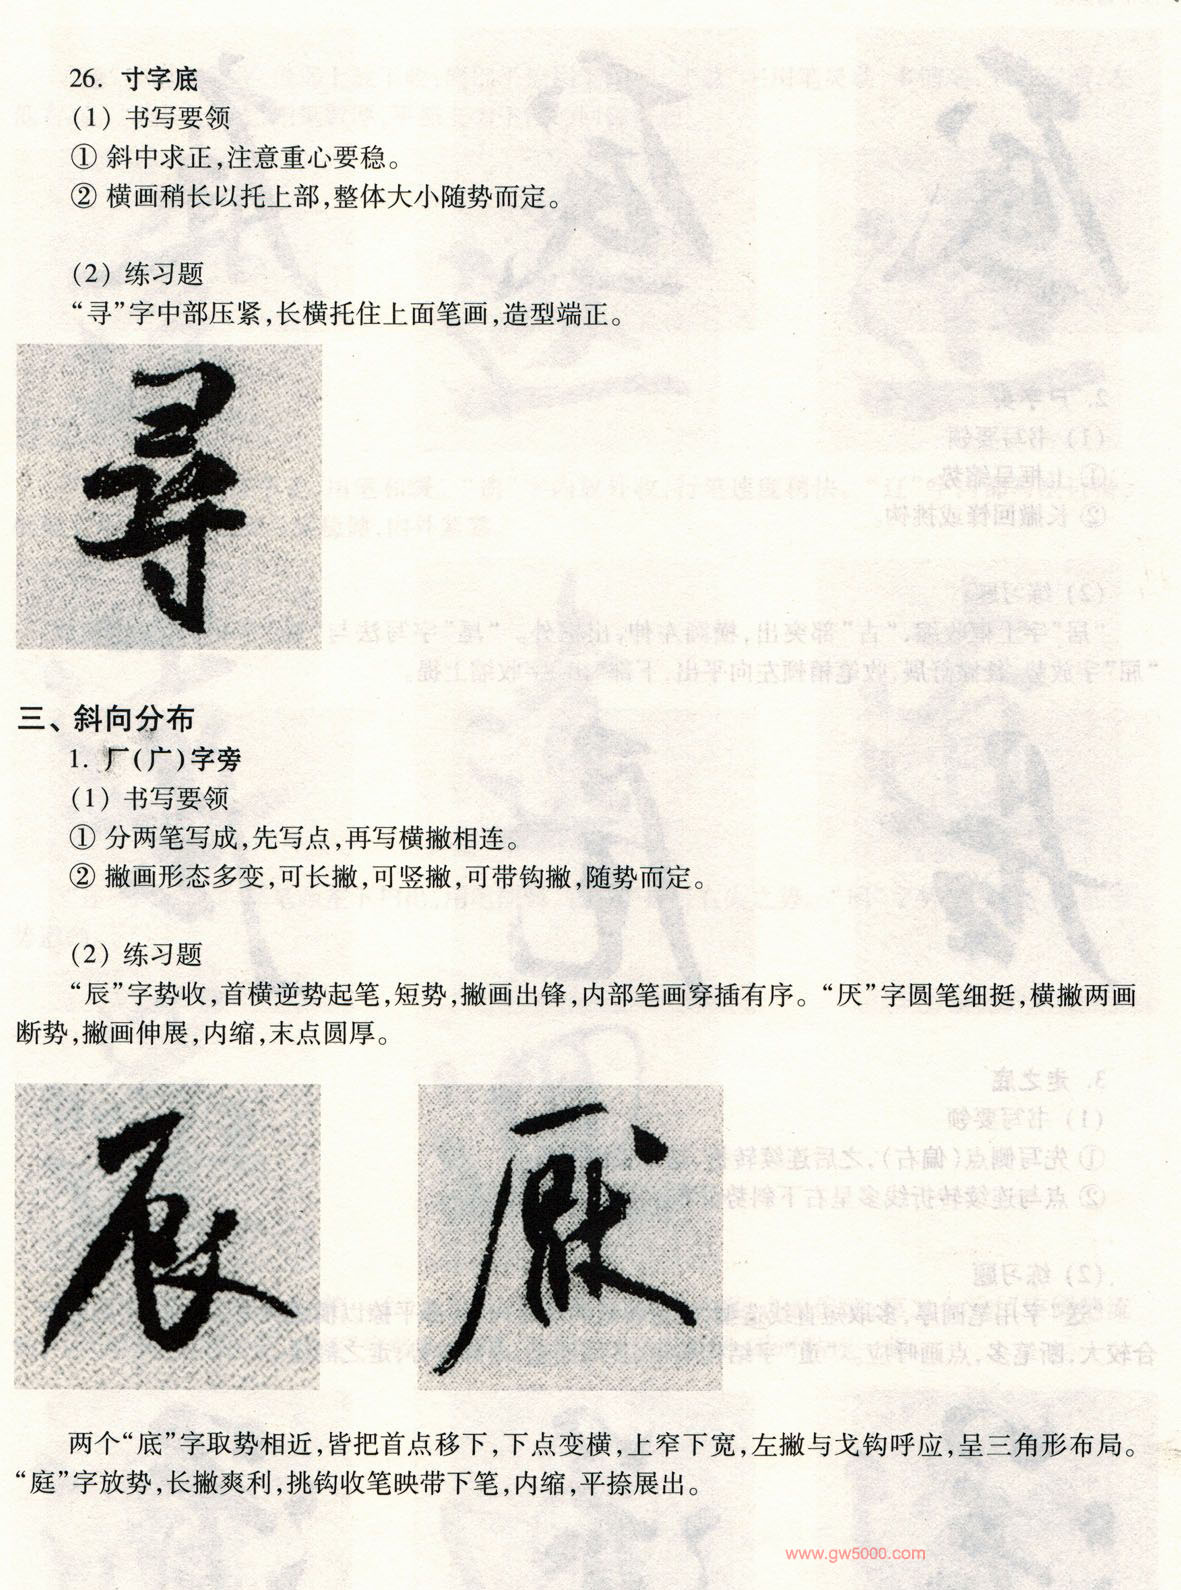 26. 寸字底
(1) 书写要领
① 斜中求正,注意重心要稳。
② 横画稍长以托上部,整体大小随势而定。
(2) 练习题
“寻”字中部压紧,长横托住上面笔画,造型端正。
尋
三、斜向分布
1. 厂(广)字旁
(1) 书写要领
① 分两笔写成,先写点,再写横撇相连。
② 撇画形态多变,可长撇,可竖撇,可带钩撇,随势而定。
(2) 练习题
“辰”字势收,首横逆势起笔,短势,撇画出锋,内部笔画穿插有序。“厌”字圆笔细挺,横撇两画
断势,撇画伸展,内缩,末点圆厚。
辰 厭
两个“底”字取势相近,皆把首点移下,下点变横,上窄下宽,左撇与戈钩呼应,呈三角形布局。
“庭”字放势,长撇爽利,挑钩收笔映带下笔,内缩,平捺展出。
www.gw5000.com